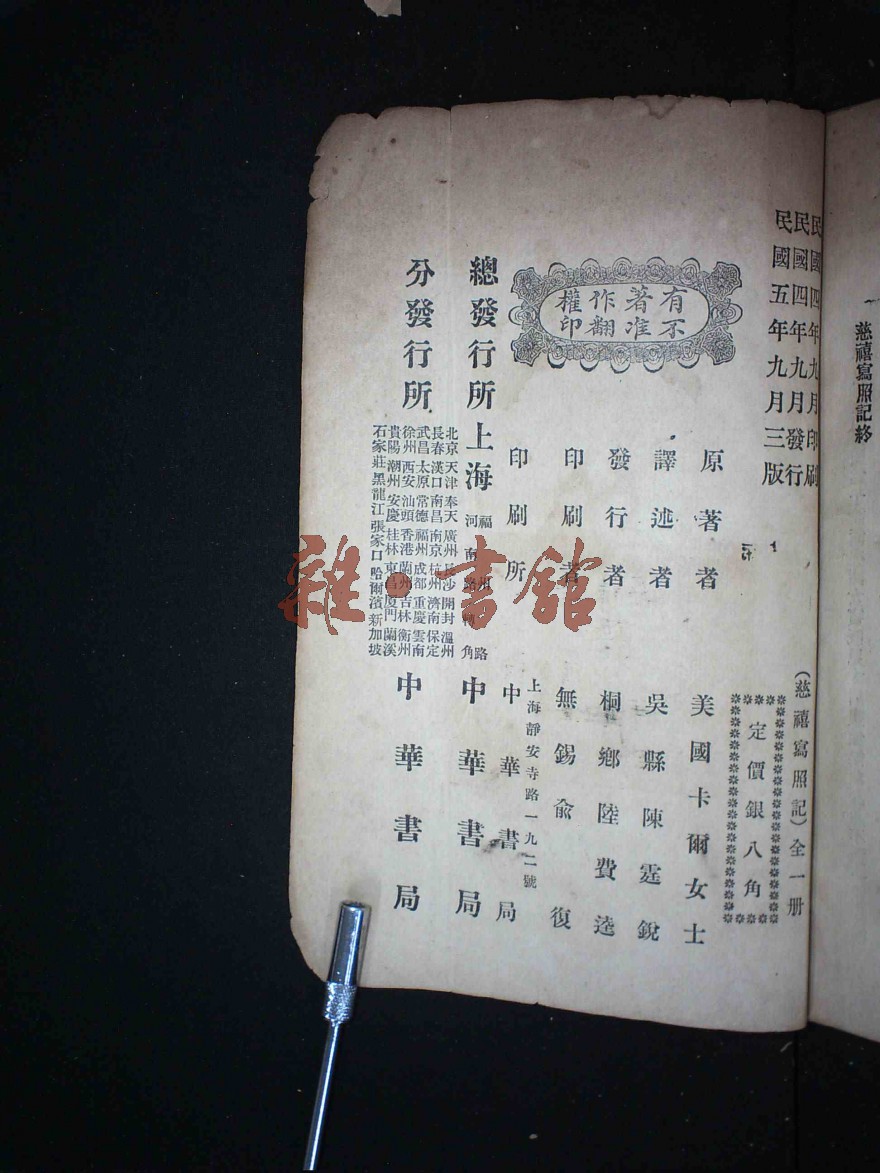 慈禧寫照記終
民國四年九月印刷
民國四年九月發行
民國五年九月三版
(慈禧寫照記)全一册
定價銀八角
有不
著准
作翻
權印
原著者 美國卡爾女士
譯述者 吳縣陳霆銳
發行者 桐鄉陸費逵
印刷者 無錫俞復
印刷所 上海靜安寺路一九二號
中華書局
總發行所 上海 福州路
河南路轉角
中華書局
分發行所
北京天津奉天廣州長沙開封溫州
長春漢口南昌南京杭州濟南保定
武昌太原常德福州成都重慶雲南
徐州西安汕頭香港蘭州吉林衡州
貴陽潮州安慶桂林東昌廈門蘭溪
石家莊黑龍江張家口哈爾濱新加坡
中華書局
雜·書館